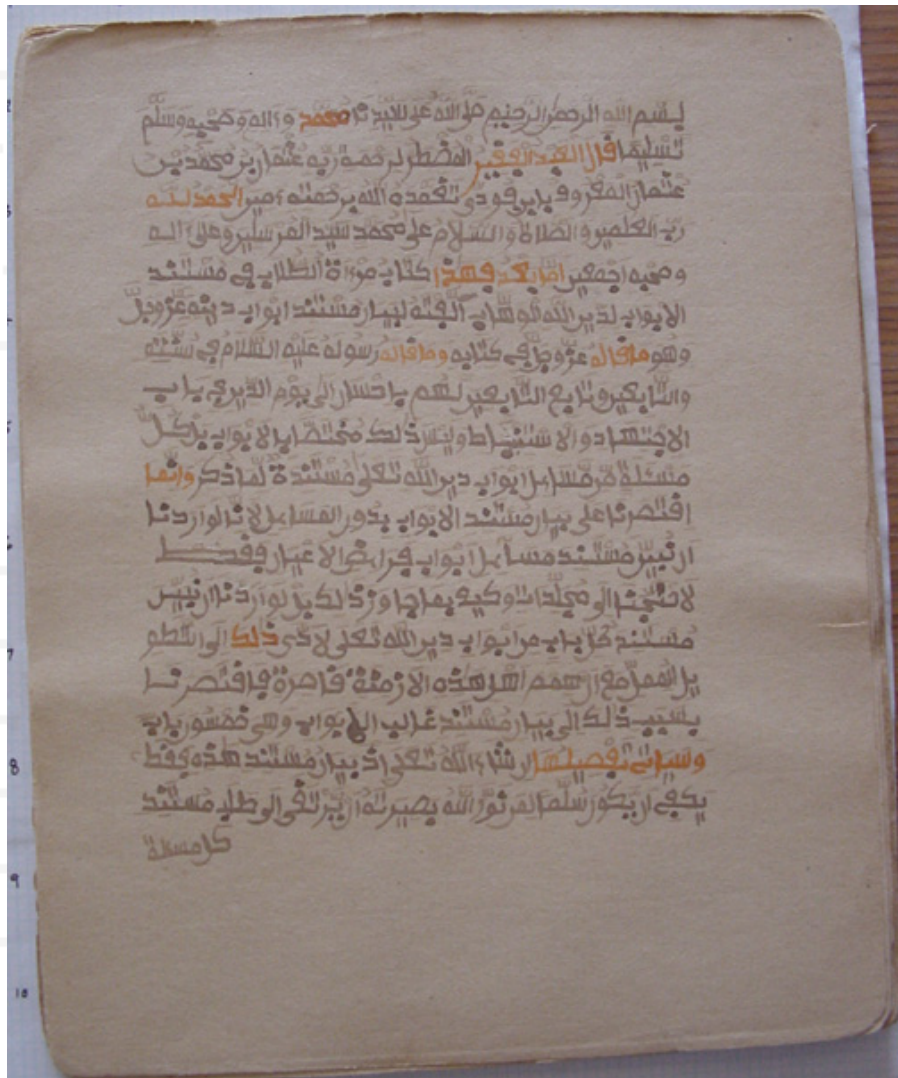 بسم الله الرحمن الرحيم صلى الله على سيدنا محمد وءاله وصحبه وسلم
تسليما قال العبد الفقير المضطر لرحمة ربه عثمان بن محمد بن
عثمان المعروف بابن فودي تغمده الله برحمته ءامين الحمد لله
رب العلمين والصلاة والسلام على محمد سيد المرسلين وعلى ءاله
وصحبه اجمعين اما بعد فهذا كتاب مرءاة الطلاب في مستند
الابواب لدين الله الوهاب ألفته لبيان مستند ابواب دينه عز وجل
وهو ما قاله عز وجل في كتابه وما قاله رسوله عليه السلام في سنته
والتابعين وتابع التابعين لهم باحسان الى يوم الدين في باب
الاجتهاد والاستنباط وليس ذلك مختصا بالابواب بل كل
مسئلة من مسائل ابواب دين الله تعلى مستندة لما ذكر وانما
اقتصرنا على بيان مستند الابواب بدون المسائل لانا لو اردنا
ان نبين مستند مسآئل ابواب فرائض الاعيان فقط
لاحتجنا الى مجلدات وكيف بما جاوز ذلك بل لو اردنا ان نبين
مستند كل باب من ابواب دين الله تعلى لادى ذلك الى التطو
يل الممل مع ان همم اهل هذه الازمنة قاصرة فاقتصرنا
بسبب ذلك الى بيان مستند غالب الابواب وهي خمسون باب
وسياتي تفصيلها ان شاء الله تعلى اذ بيان مستند هذه فقط
يكفي ان يكون سلما لمن نور الله بصيرته ان يرتقى الى طلب مستند
كل مسئلة
7
8
9
10